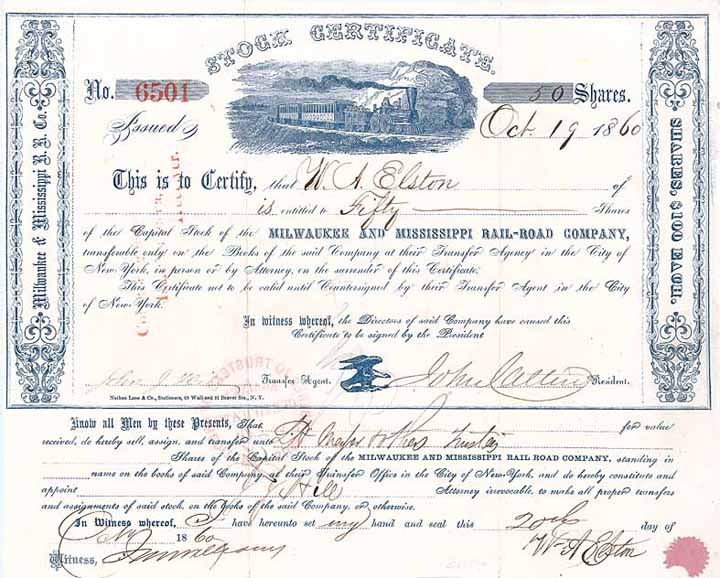 STOCK CERTIFICATE.
No. 6501 50 Shares.
Issued Oct. 19 1860
Milwaukee & Mississippi R. R. Co.
SHARES, $100 EACH.
This is to Certify, that W. A. Elston of
is entitled to Fifty Shares
of the Capital Stock of the MILWAUKEE AND MISSISSIPPI RAIL-ROAD COMPANY,
transferable only on the Books of the said Company at their Transfer Agency in the City of
New York, in person or by Attorney, on the surrender of this Certificate.
This Certificate not to be valid until Countersigned by their Transfer Agent in the City
of New York.
In witness whereof, the Directors of said Company have caused this
Certificate to be signed by the President
Transfer Agent. John Catlin President.
Nathan Lane & Co., Stationers, 69 Wall and 91 Beaver Sts., N. Y.
Know all Men by these Presents, That for value
received, do hereby sell, assign, and transfer unto
Shares of the Capital Stock of the MILWAUKEE AND MISSISSIPPI RAIL ROAD COMPANY, standing in
name on the books of said Company at their Transfer Office in the City of New-York, and do hereby constitute and
appoint Attorney irrevocable, to make all proper transfers
and assignments of said stock, on the books of the said Company, or otherwise.
In Witness whereof, I have hereunto set my hand and seal this 20th day of
1860 W. A. Elston
Witness,